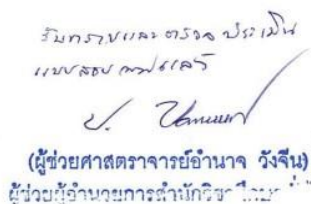 รับทราบและตรวจประเมิน
แบบสอบถามแล้ว
(ผู้ช่วยศาสตราจารย์อำนาจ วังจีน)
ผู้ช่วยผู้อำนวยการสำนักวิชา